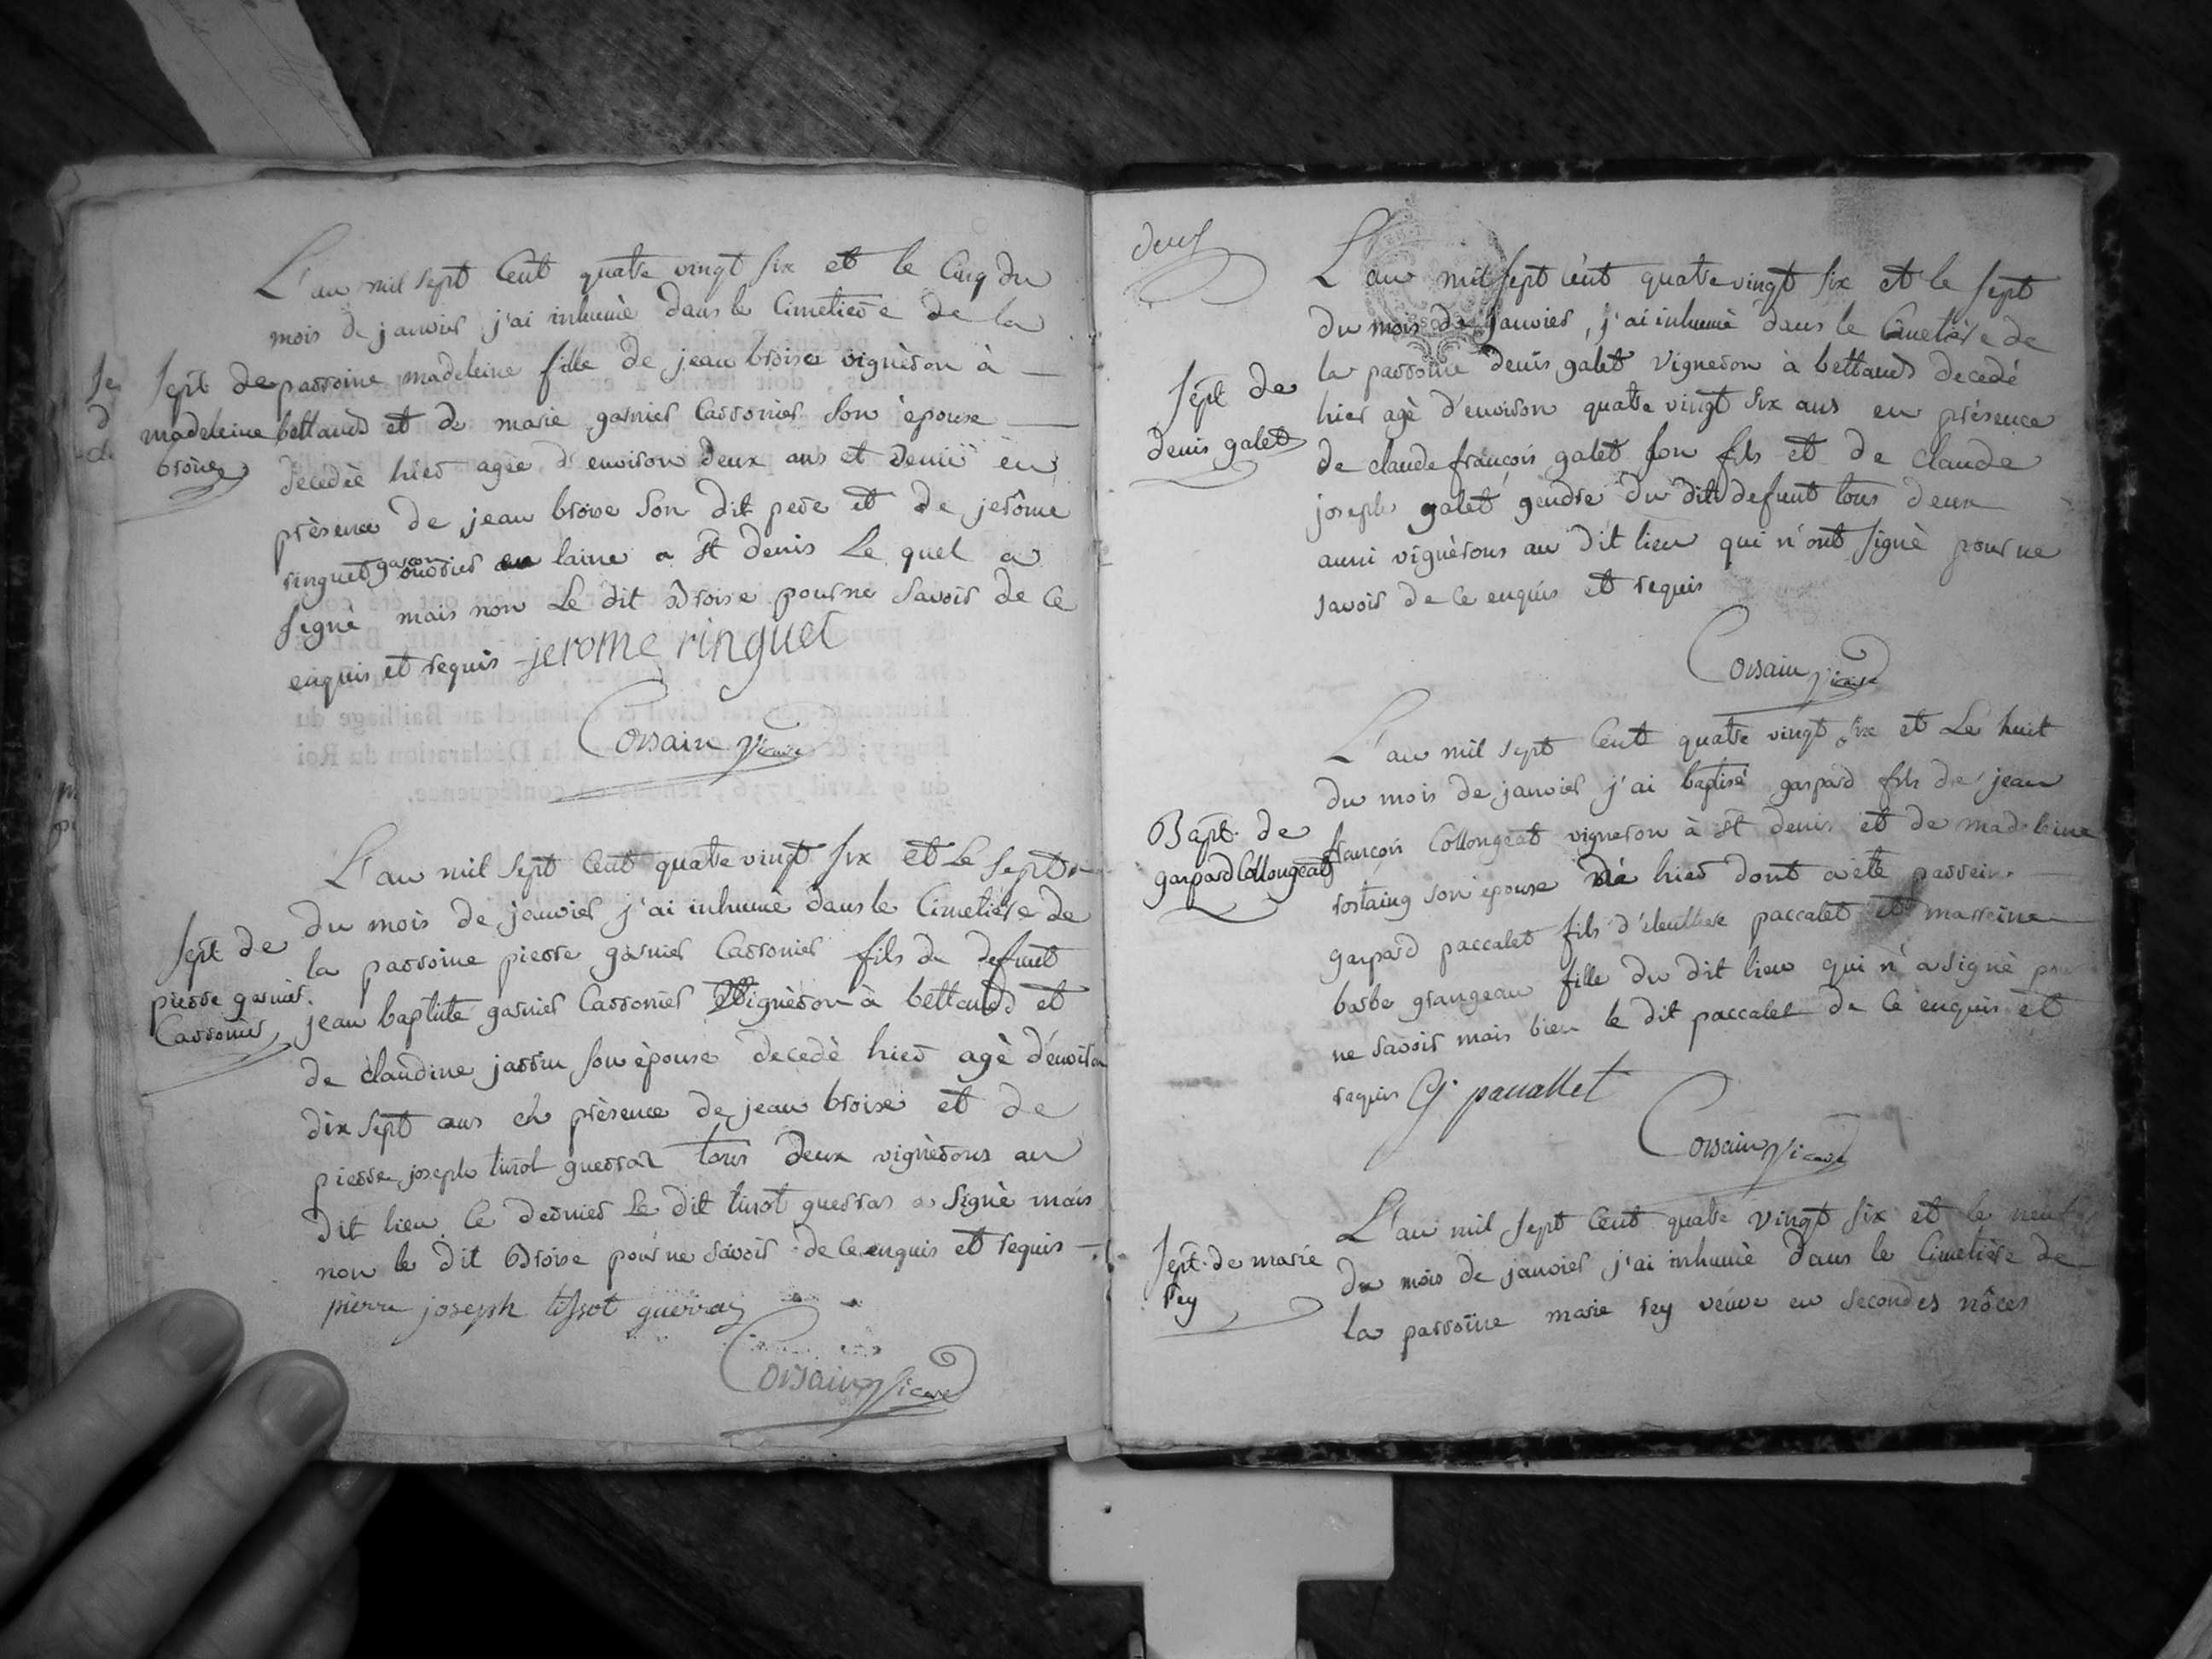 L'an mil sept cent quatre vingt six et le cinq du
mois de janvier j'ai inhumè dans le cimetiere de la
Sept de
madeleine
broise
parroine madeleine fille de jean broise vignèron à
bettand et de marie garnier carronier son èpouse
decedèe hier agèe d'environ deux ans et demie en
prèsence de jean broise son dit pere et de jerôme
ringuet garçon ouvrier en laine a st denis le quel a
signè mais non le dit broise pour ne savoir de ce
enquis et requis jerome ringuet
Corsain vicaire
L'an mil sept cent quatre vingt six et le sept
du mois de janvier j'ai inhumè dans le cimetière de
Sept de
pierre garnier
Carronier
la parroine pierre garnier carronier fils de defunt
jean baptiste garnier carronier vignèron à bettand et
de claudine jarrin son èpouse decedè hier agè d'environ
dix sept ans en prèsence de jean broise et de
pierre joseph tissot guerraz tous deux vignèrons au
dit lieu ce dernier le dit tissot guerraz a signè mais
non le dit broise pour ne savoir de ce enquis et requis
pierre joseph tissot guerraz
Corsain vicaire
deux
L'an mil sept cent quatre vingt six et le sept
du mois de janvier, j'ai inhumè dans le cimetière de
Sept de
denis galet
la parroine denis galet vigneron à bettand decedé
hier agè d'environ quatre vingt six ans en prèsence
de claude françois galet son fils et de claude
joseph galet gendre du dit defunt tous deux
aussi vignèrons au dit lieu qui n'ont signè pour ne
savoir de ce enquis et requis
Corsain vicaire
L'an mil sept cent quatre vingt six et le huit
du mois de janvier j'ai baptisé gaspard fils de jean
Bapt. de
gaspard Collongeat
françois Collongeat vigneron à st denis et de madeleine
rostaing son epouse né hier dont a été parrein
gaspard paccalet fils d'eleuthere paccalet et marreine
barbe grangeau fille du dit lieu qui n'a signè pour
ne savoir mais bien le dit paccalet de ce enquis et
requis G. paccallet
Corsain vicaire
L'an mil sept cent quatre vingt six et le neuf
Sept. de marie
rey
du mois de janvier j'ai inhumè dans le cimetière de
la parroine marie rey veuve en secondes nôces